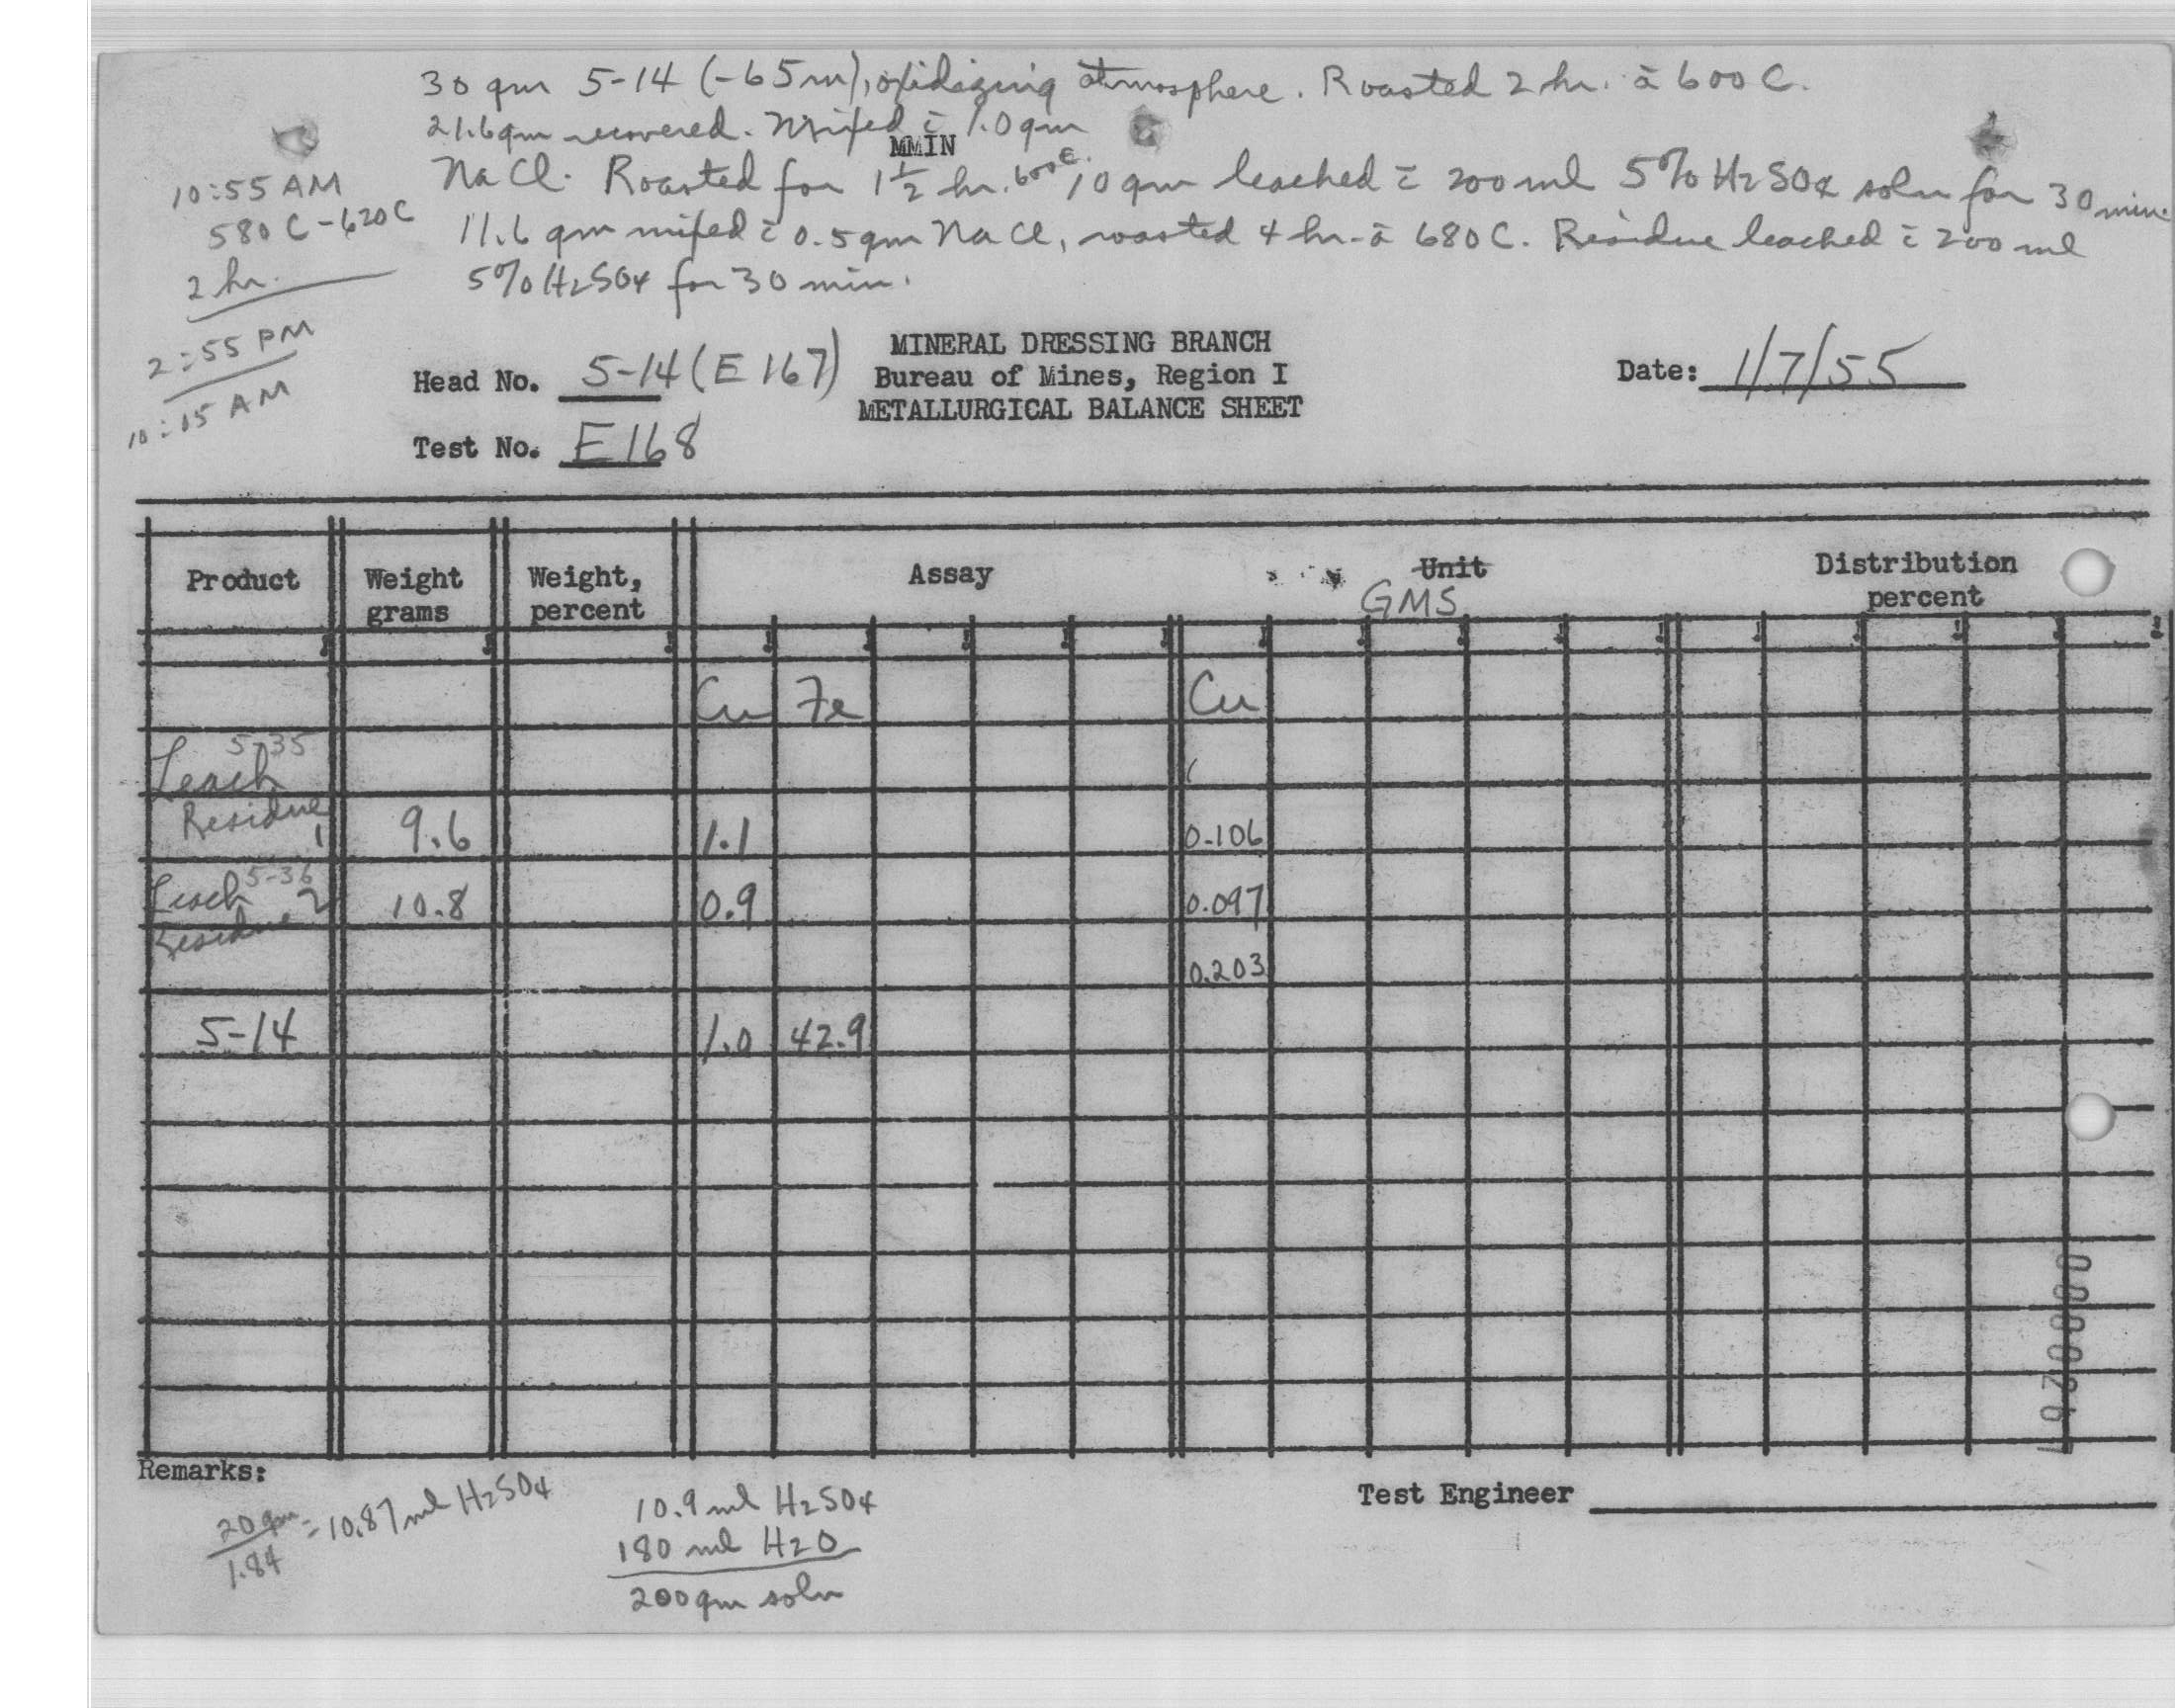 30 gm 5-14 (-65m), oxidizing atmosphere. Roasted 2 hr. ā 600 C.
21.6 gm recovered. Mixed c̄ 1.0 gm
MMIN
NaCl. Roasted for 1 1/2 hr. 600 C. 10 gm leached c̄ 200 ml 5% H2SO4 soln for 30 min.
11.6 gm mixed c̄ 0.5 gm NaCl, roasted 4 hr. ā 680 C. Residue leached c̄ 200 ml
5% H2SO4 for 30 min.
10:55 AM
580 C - 620 C
2 hr.
2:55 PM
10:15 AM
MINERAL DRESSING BRANCH
Head No. 5-14 (E 167) Bureau of Mines, Region I Date: 1/7/55
METALLURGICAL BALANCE SHEET
Test No. E168
Product Weight grams Weight, percent Assay Unit GMS Distribution percent
Cu Fe Cu
5-35
Leach
Residue 1 9.6 1.1 0.106
5-36
Leach 2 10.8 0.9 0.097
Residue
0.203
5-14 1.0 42.9
Remarks:
20 gm / 1.84 = 10.87 ml H2SO4
10.9 ml H2SO4
180 ml H2O
200 gm soln
Test Engineer